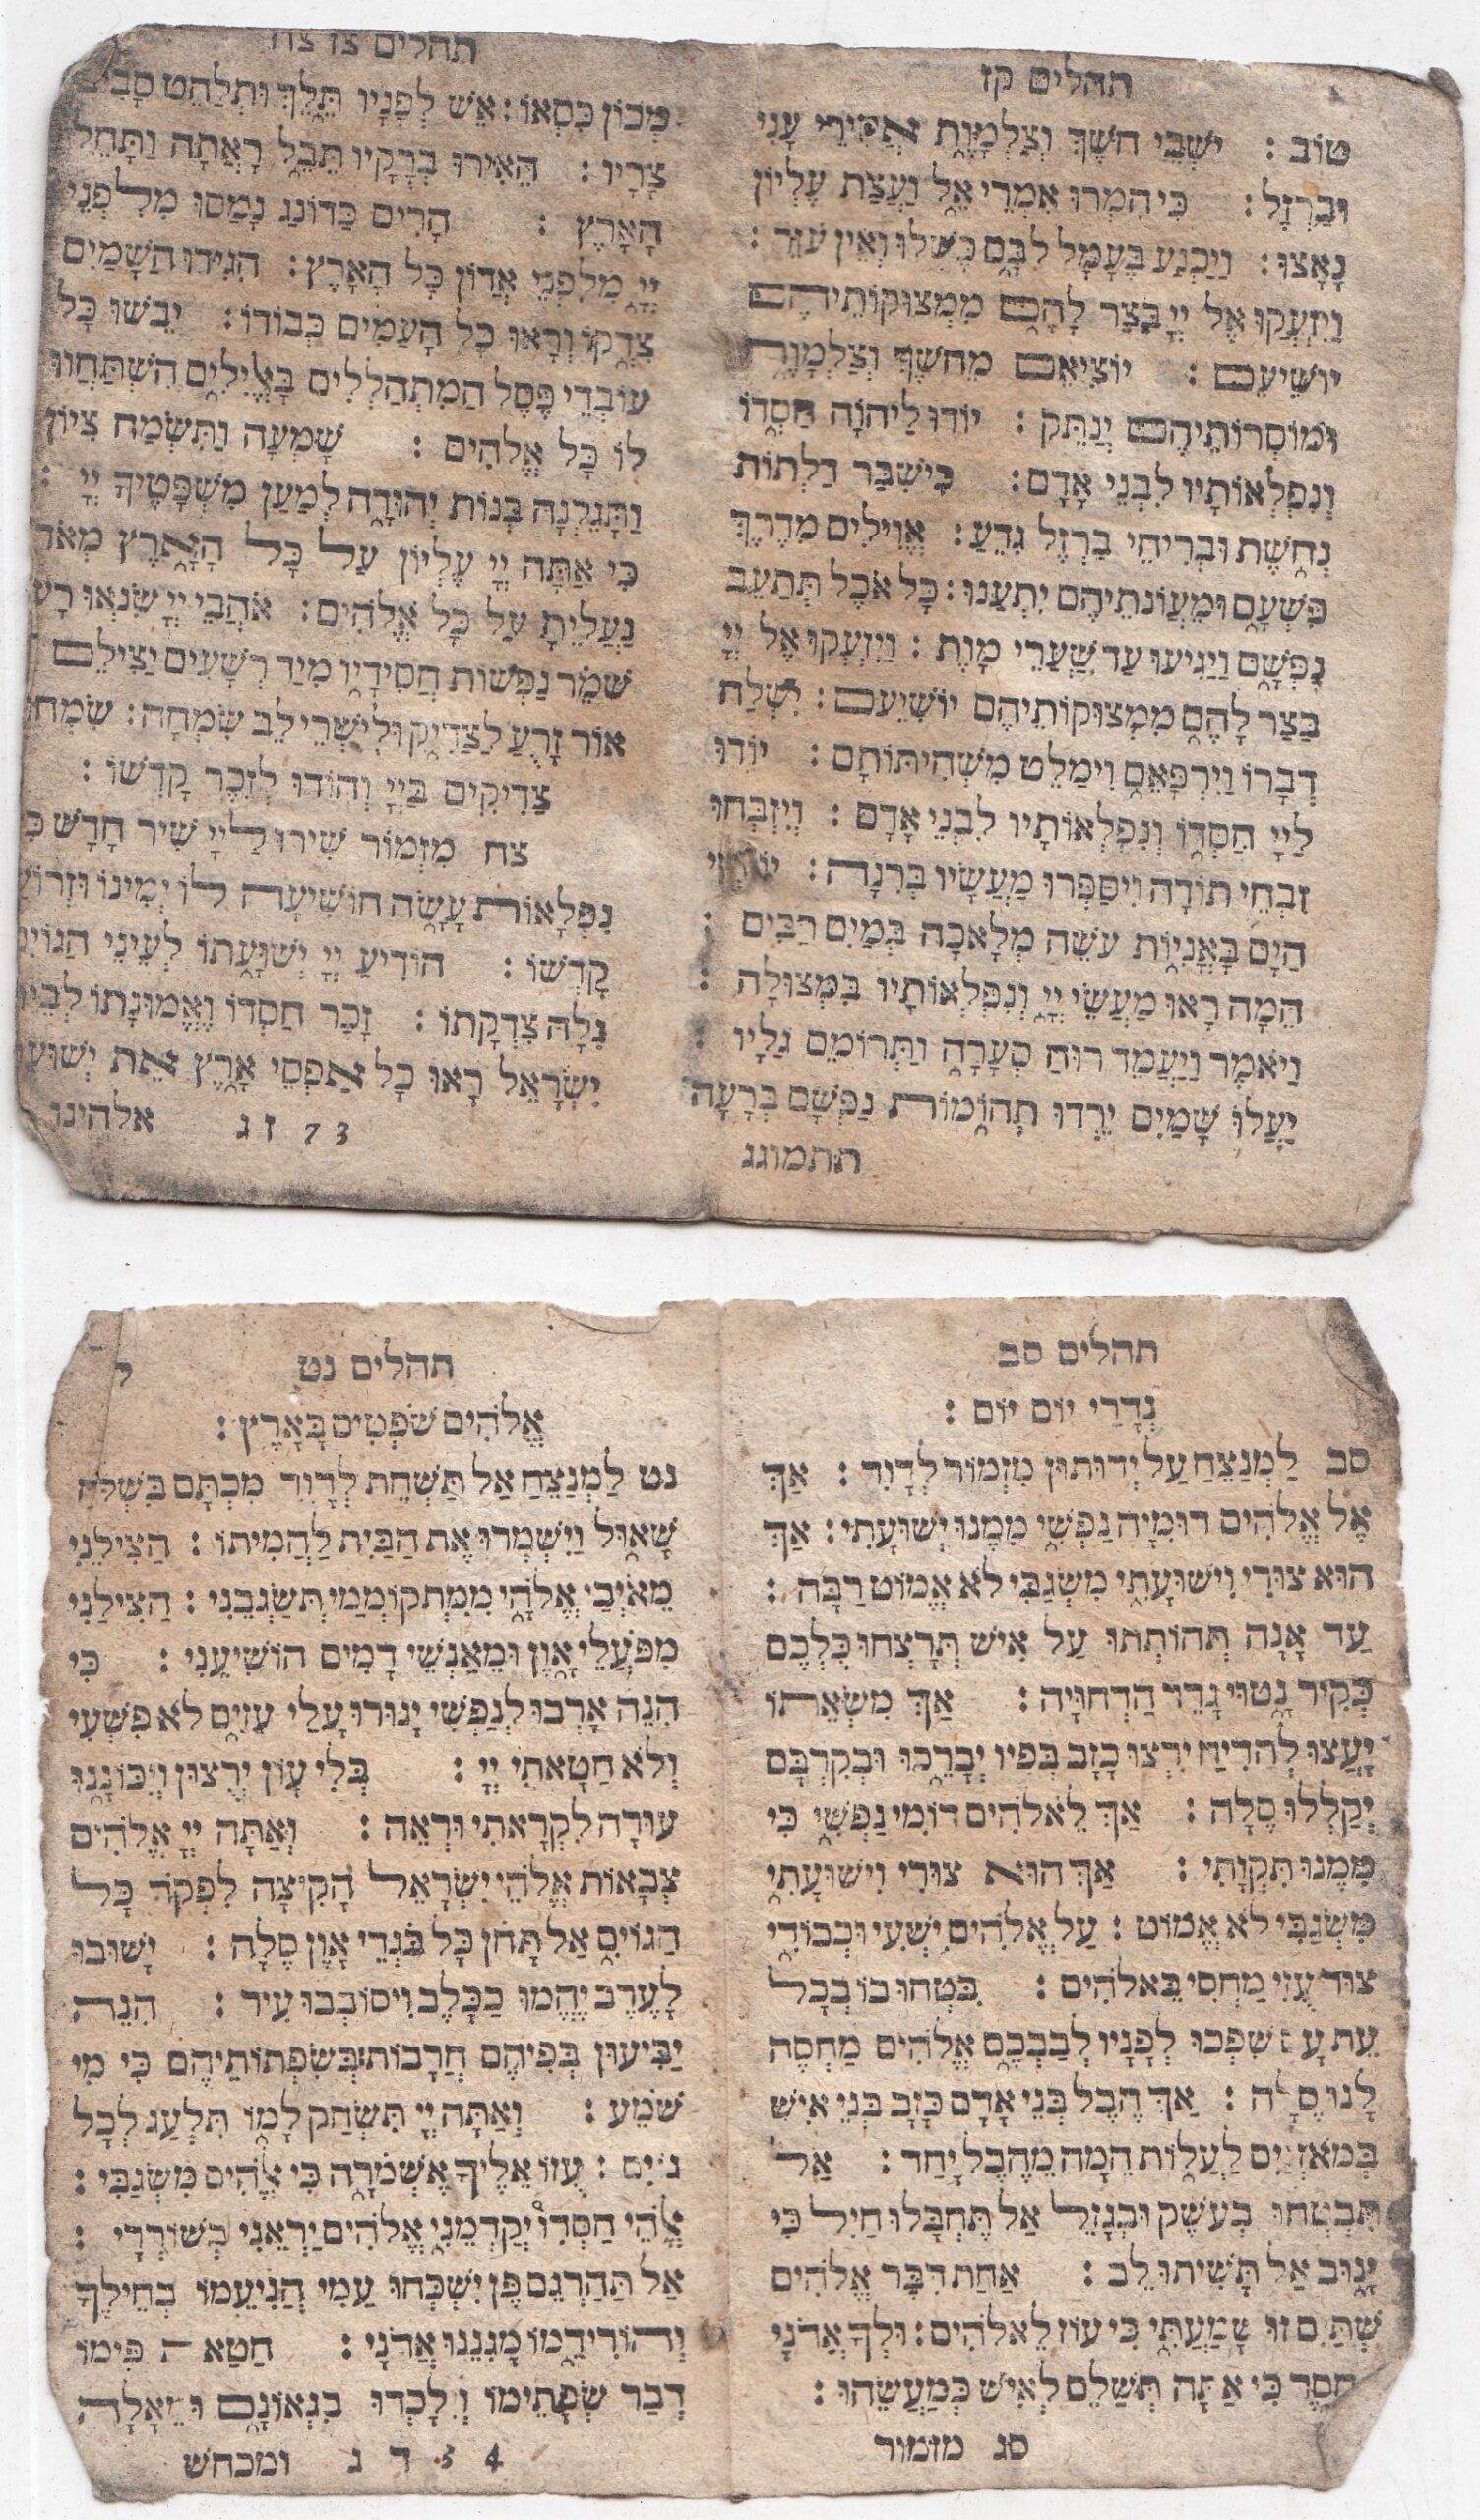 תהלים קז
טוֹב : יֹשְׁבֵי חֹשֶׁךְ וְצַלְמָוֶת אֲסִירֵי עֳנִי
וּבַרְזֶל : כִּי הִמְרוּ אִמְרֵי אֵל וַעֲצַת עֶלְיוֹן
נָאָצוּ : וַיַּכְנַע בֶּעָמָל לִבָּם כָּשְׁלוּ וְאֵין עֹזֵר :
וַיִּזְעֲקוּ אֶל יְיָ בַּצַּר לָהֶם מִמְּצוּקוֹתֵיהֶם
יוֹשִׁיעֵם : יוֹצִיאֵם מֵחֹשֶׁךְ וְצַלְמָוֶת
וּמוֹסְרוֹתֵיהֶם יְנַתֵּק : יוֹדוּ לַיהוָה חַסְדּוֹ
וְנִפְלְאוֹתָיו לִבְנֵי אָדָם : כִּי שִׁבַּר דַּלְתוֹת
נְחֹשֶׁת וּבְרִיחֵי בַרְזֶל גִּדֵּעַ : אֱוִילִים מִדֶּרֶךְ
פִּשְׁעָם וּמֵעֲוֹנֹתֵיהֶם יִתְעַנּוּ : כָּל אֹכֶל תְּתַעֵב
נַפְשָׁם וַיַּגִּיעוּ עַד שַׁעֲרֵי מָוֶת : וַיִּזְעֲקוּ אֶל יְיָ
בַּצַּר לָהֶם מִמְּצוּקוֹתֵיהֶם יוֹשִׁיעֵם : יִשְׁלַח
דְּבָרוֹ וְיִרְפָּאֵם וִימַלֵּט מִשְּׁחִיתוֹתָם : יוֹדוּ
לַיְיָ חַסְדּוֹ וְנִפְלְאוֹתָיו לִבְנֵי אָדָם : וְיִזְבְּחוּ
זִבְחֵי תוֹדָה וִיסַפְּרוּ מַעֲשָׂיו בְּרִנָּה :
הַיָּם בָּאֳנִיּוֹת עֹשֵׂה מְלָאכָה בְּמַיִם רַבִּים :
הֵמָּה רָאוּ מַעֲשֵׂי יְיָ וְנִפְלְאוֹתָיו בִּמְצוּלָה :
וַיֹּאמֶר וַיַּעֲמֵד רוּחַ סְעָרָה וַתְּרוֹמֵם גַּלָּיו :
יַעֲלוּ שָׁמַיִם יֵרְדוּ תְהוֹמוֹת נַפְשָׁם בְּרָעָה
תתמוגג
תהלים צז צח
מְכוֹן כִּסְאוֹ : אֵשׁ לְפָנָיו תֵּלֵךְ וּתְלַהֵט סָבִיב
צָרָיו : הֵאִירוּ בְרָקָיו תֵּבֵל רָאֲתָה וַתָּחֵל
הָאָרֶץ : הָרִים כַּדּוֹנַג נָמַסּוּ מִלִּפְנֵי
יְיָ מִלִּפְנֵי אֲדוֹן כָּל הָאָרֶץ : הִגִּידוּ הַשָּׁמַיִם
צִדְקוֹ וְרָאוּ כָל הָעַמִּים כְּבוֹדוֹ : יֵבֹשׁוּ כָּל
עוֹבְדֵי פֶסֶל הַמִּתְהַלְלִים בָּאֱלִילִים הִשְׁתַּחֲווּ
לוֹ כָּל אֱלֹהִים : שָׁמְעָה וַתִּשְׂמַח צִיּוֹן
וַתָּגֵלְנָה בְּנוֹת יְהוּדָה לְמַעַן מִשְׁפָּטֶיךָ יְיָ :
כִּי אַתָּה יְיָ עֶלְיוֹן עַל כָּל הָאָרֶץ מְאֹד
נַעֲלֵיתָ עַל כָּל אֱלֹהִים : אֹהֲבֵי יְיָ שִׂנְאוּ רָע
שֹׁמֵר נַפְשׁוֹת חֲסִידָיו מִיַּד רְשָׁעִים יַצִּילֵם
אוֹר זָרֻעַ לַצַּדִּיק וּלְיִשְׁרֵי לֵב שִׂמְחָה : שִׂמְחוּ
צַדִּיקִים בַּיְיָ וְהוֹדוּ לְזֵכֶר קָדְשׁוֹ :
צח מִזְמוֹר שִׁירוּ לַיְיָ שִׁיר חָדָשׁ כִּי
נִפְלָאוֹת עָשָׂה הוֹשִׁיעָה לּוֹ יְמִינוֹ וּזְרוֹעַ
קָדְשׁוֹ : הוֹדִיעַ יְיָ יְשׁוּעָתוֹ לְעֵינֵי הַגּוֹיִם
גִּלָּה צִדְקָתוֹ : זָכַר חַסְדּוֹ וֶאֱמוּנָתוֹ לְבֵית
יִשְׂרָאֵל רָאוּ כָל אַפְסֵי אָרֶץ אֵת יְשׁוּעַת
73 ז ג אלהינו
תהלים סב
נְדָרַי יוֹם יוֹם :
סב לַמְנַצֵּחַ עַל יְדוּתוּן מִזְמוֹר לְדָוִד : אַךְ
אֶל אֱלֹהִים דּוּמִיָּה נַפְשִׁי מִמֶּנּוּ יְשׁוּעָתִי : אַךְ
הוּא צוּרִי וִישׁוּעָתִי מִשְׂגַּבִּי לֹא אֶמּוֹט רַבָּה :
עַד אָנָה תְּהוֹתְתוּ עַל אִישׁ תְּרָצְּחוּ כֻלְּכֶם
כְּקִיר נָטוּי גָּדֵר הַדְּחוּיָה : אַךְ מִשְּׂאֵתוֹ
יָעֲצוּ לְהַדִּיחַ יִרְצוּ כָזָב בְּפִיו יְבָרֵכוּ וּבְקִרְבָּם
יְקַלְלוּ סֶלָה : אַךְ לֵאלֹהִים דּוֹמִּי נַפְשִׁי כִּי
מִמֶּנּוּ תִּקְוָתִי : אַךְ הוּא צוּרִי וִישׁוּעָתִי
מִשְׂגַּבִּי לֹא אֶמּוֹט : עַל אֱלֹהִים יִשְׁעִי וּכְבוֹדִי
צוּר עֻזִּי מַחְסִי בֵּאלֹהִים : בִּטְחוּ בוֹ בְכָל
עֵת שִׁפְכוּ לְפָנָיו לְבַבְכֶם אֱלֹהִים מַחֲסֶה
לָּנוּ סֶלָה : אַךְ הֶבֶל בְּנֵי אָדָם כָּזָב בְּנֵי אִישׁ
בְּמֹאזְנַיִם לַעֲלוֹת הֵמָּה מֵהֶבֶל יָחַד : אַל
תִּבְטְחוּ בְעֹשֶׁק וּבְגָזֵל אַל תֶּהְבָּלוּ חַיִל כִּי
יָנוּב אַל תָּשִׁיתוּ לֵב : אַחַת דִּבֶּר אֱלֹהִים
שְׁתַּיִם זוּ שָׁמָעְתִּי כִּי עוֹז לֵאלֹהִים : וּלְךָ אֲדֹנָי
חָסֶד כִּי אַתָּה תְּשַׁלֵּם לְאִישׁ כְּמַעֲשֵׂהוּ :
סג מזמור
תהלים נט
אֱלֹהִים שֹׁפְטִים בָּאָרֶץ :
נט לַמְנַצֵּחַ אַל תַּשְׁחֵת לְדָוִד מִכְתָּם בִּשְׁלֹחַ
שָׁאוּל וַיִּשְׁמְרוּ אֶת הַבַּיִת לַהֲמִיתוֹ : הַצִּילֵנִי
מֵאֹיְבַי אֱלֹהָי מִמִּתְקוֹמְמַי תְּשַׂגְּבֵנִי : הַצִּילֵנִי
מִפֹּעֲלֵי אָוֶן וּמֵאַנְשֵׁי דָמִים הוֹשִׁיעֵנִי : כִּי
הִנֵּה אָרְבוּ לְנַפְשִׁי יָגוּרוּ עָלַי עַזִּים לֹא פִשְׁעִי
וְלֹא חַטָּאתִי יְיָ : בְּלִי עָוֹן יְרֻצוּן וְיִכּוֹנָנוּ
עוּרָה לִקְרָאתִי וּרְאֵה : וְאַתָּה יְיָ אֱלֹהִים
צְבָאוֹת אֱלֹהֵי יִשְׂרָאֵל הָקִיצָה לִפְקֹד כָּל
הַגּוֹיִם אַל תָּחֹן כָּל בֹּגְדֵי אָוֶן סֶלָה : יָשׁוּבוּ
לָעֶרֶב יֶהֱמוּ כַכָּלֶב וִיסוֹבְבוּ עִיר : הִנֵּה
יַבִּיעוּן בְּפִיהֶם חֲרָבוֹת בְּשִׂפְתוֹתֵיהֶם כִּי מִי
שֹׁמֵעַ : וְאַתָּה יְיָ תִּשְׂחַק לָמוֹ תִּלְעַג לְכָל
גּוֹיִם : עֻזּוֹ אֵלֶיךָ אֶשְׁמֹרָה כִּי אֱלֹהִים מִשְׂגַּבִּי :
אֱלֹהֵי חַסְדִּוֹ יְקַדְּמֵנִי אֱלֹהִים יַרְאֵנִי בְשׁוֹרְרָי :
אַל תַּהַרְגֵם פֶּן יִשְׁכְּחוּ עַמִּי הֲנִיעֵמוֹ בְחֵילְךָ
וְהוֹרִידֵמוֹ מָגִנֵּנוּ אֲדֹנָי : חַטַּאת פִּימוֹ
דְּבַר שְׂפָתֵימוֹ וְיִלָּכְדוּ בִגְאוֹנָם וּמֵאָלָה
54 ד ג ומכחש